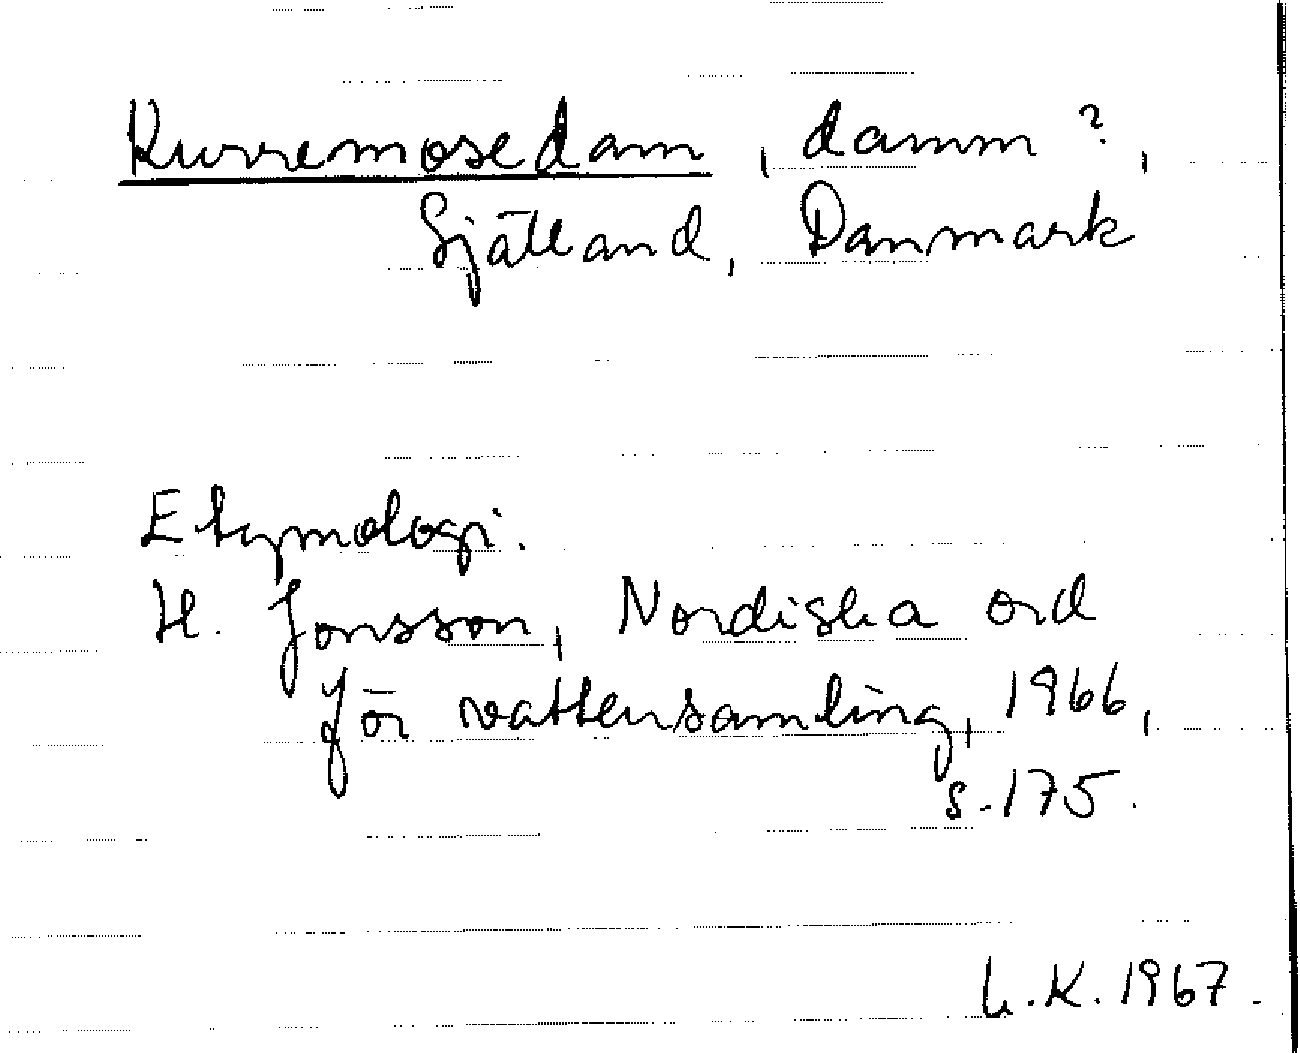 Kurremosedam, damm?,
Själland, Danmark
Etymologi.
H. Jonsson, Nordiska ord
för vattensamling, 1966,
s. 175.
L.K. 1967.